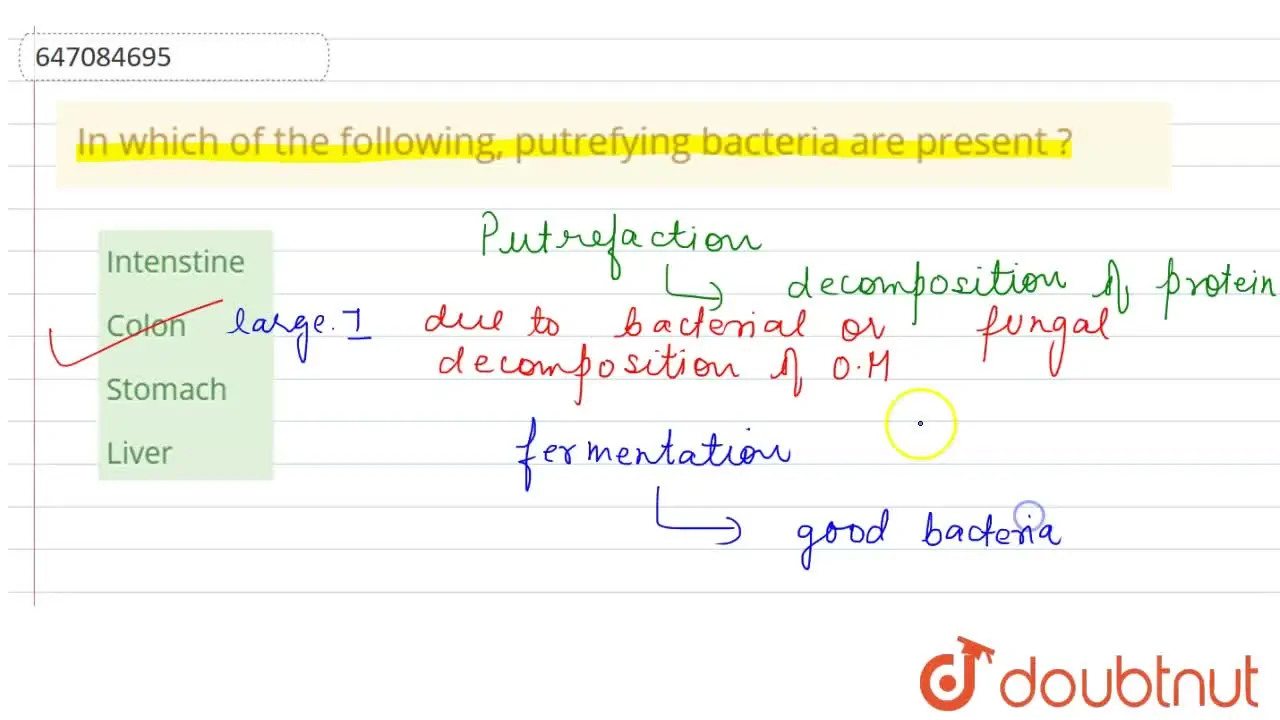 647084695
In which of the following, putrefying bacteria are present ?
Putrefaction
decomposition of protein
Intenstine
Colon large.I due to bacterial or fungal
decomposition of O.M
Stomach
fermentation
Liver
good bacteria
doubtnut